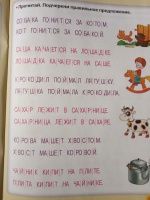 Прочитай. Подчеркни правильное предложение.
СОБАКА ГОНИТСЯ ЗА КОТОМ.
КОТ ГОНИТСЯ ЗА СОБАКОЙ.
САША КАЧАЕТСЯ НА ЛОШАДКЕ.
ЛОШАДКА КАЧАЕТСЯ НА САШЕ.
КРОКОДИЛ ПОЙМАЛ ЛЯГУШКУ.
ЛЯГУШКА ПОЙМАЛА КРОКОДИЛА.
САХАР ЛЕЖИТ В САХАРНИЦЕ.
САХАРНИЦА ЛЕЖИТ В САХАРЕ.
КОРОВА МАШЕТ ХВОСТОМ.
ХВОСТ МАШЕТ КОРОВОЙ.
ЧАЙНИК КИПИТ НА ПЛИТЕ.
ПЛИТА КИПИТ НА ЧАЙНИКЕ.